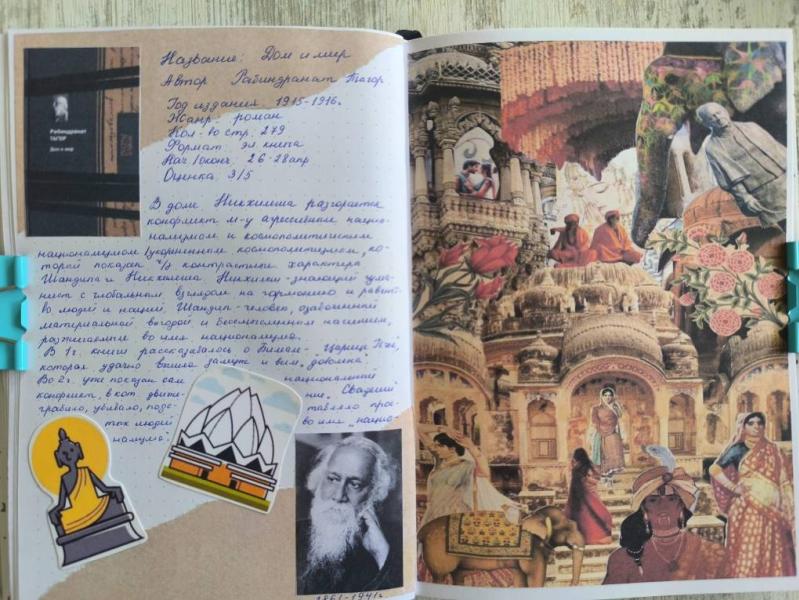 Рабиндранат
ТАГОР
Дом и мир
Название: Дом и мир
Автор Рабиндранат Тагор
Год издания 1915-1916г.
Жанр: роман
Кол-во стр. 279
Формат: эл книга
Нач/оконч: 26-28апр
Оценка 3/5
В доме Никхилеша разгорается
конфликт м-у агрессивным нацио-
нализмом и космополитическим
национализмом (укорененным космополитизмом), ко-
торый показан ч/з контрастн характера
Шандипа и Никхилеша. Никхилеш-знающий гума-
нист с глобальным взглядом на гармонию и равенст-
во людей и наций. Шандип-человек, озабоченный
материальной выгодой и бессмысленным насилием,
разжигаемым во имя национализма.
В 1ч. книги рассказывалось о Бимале-"царице
которая удачно вышла замуж и всем "довольна".
Во 2ч. уже показан сам национальный
конфликт, в кот. движе- ние Свадеши
грабило, убивало, подс- тавляло прос-
тых людей во имя "нацио-
нализма".
1861-1941г.